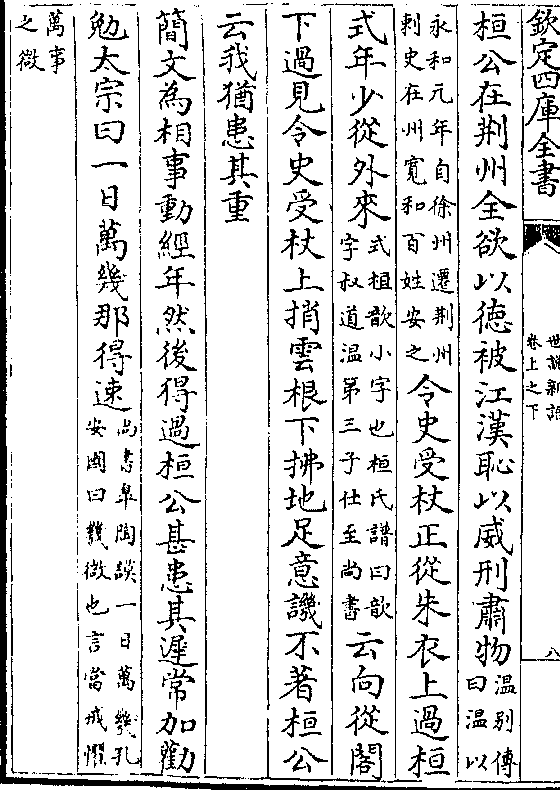 欽定四庫全書
世說新語
卷上之下
八
桓公在荆州全欲以德被江漢恥以威刑肅物温别傳
曰温以
永和元年自徐州遷荆州
刺史在州寛和百姓安之令史受杖正從朱衣上過桓
式年少從外來式桓歆小字也桓氏譜曰歆
字叔道温第三子仕至尚書云向從閣
下過見令史受杖上捎雲根下拂地足意譏不著桓公
云我猶患其重
簡文為相事動經年然後得過桓公甚患其遲常加勸
勉太宗曰一日萬幾那得速尚書臯陶謨一日萬幾孔
安國曰幾微也言當戒懼
萬事
之微